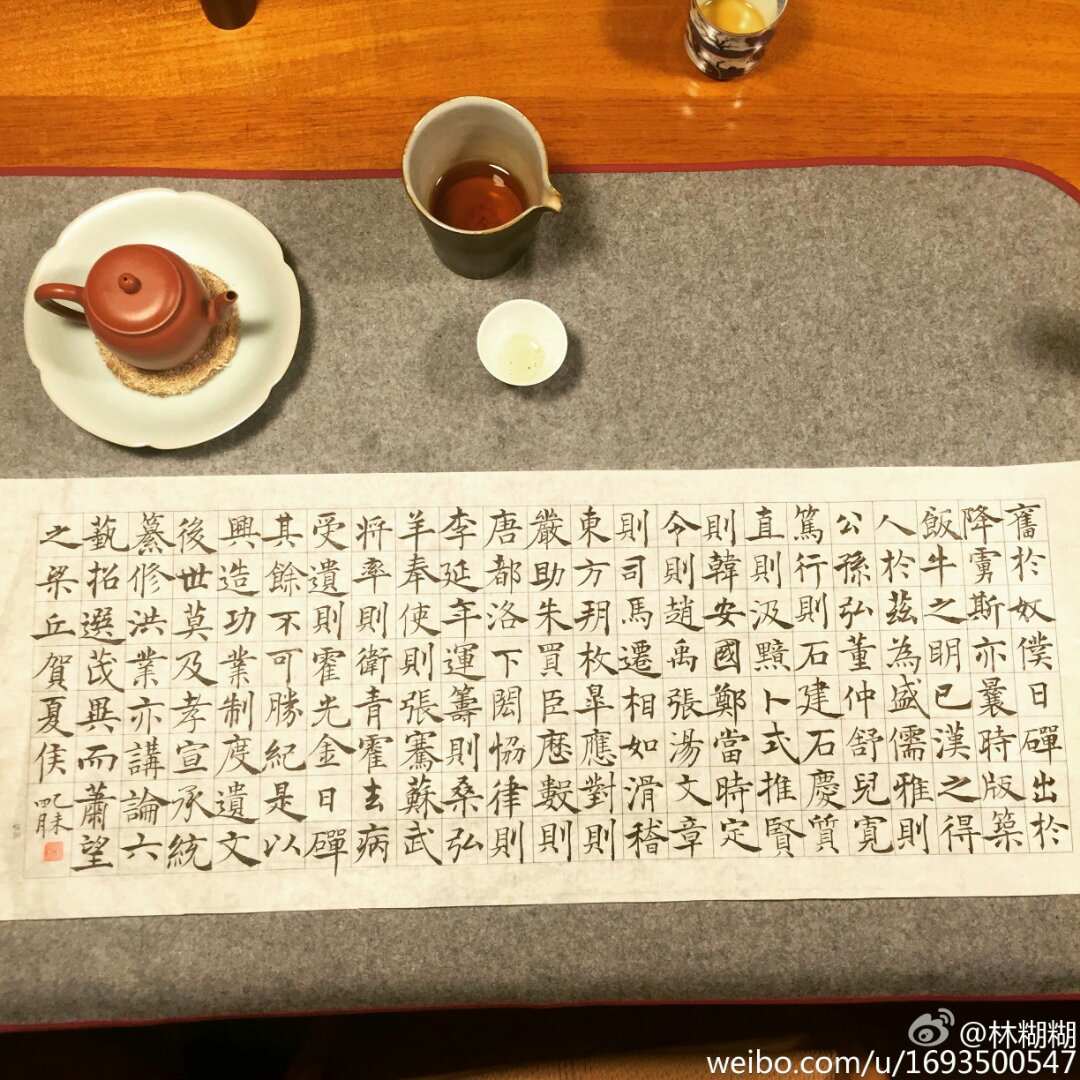 奮於奴僕日磾出於
降虜斯亦曩時版築
飯牛之明已漢之得
人於茲為盛儒雅則
公孫弘董仲舒兒寬
篤行則石建石慶質
直則汲黯卜式推賢
則韓安國鄭當時定
令則趙禹張湯文章
則司馬遷相如滑稽
東方朔枚皐應對則
嚴助朱買臣歷數則
唐都洛下閎協律則
李延年運籌則桑弘
羊奉使則張騫蘇武
将率則衛青霍去病
受遺則霍光金日磾
其餘不可勝紀是以
興造功業制度遺文
後世莫及孝宣承統
纂修洪業亦講論六
藝招選茂異而蕭望
之梁丘賀夏侯
@林糊糊
weibo.com/u/1693500547